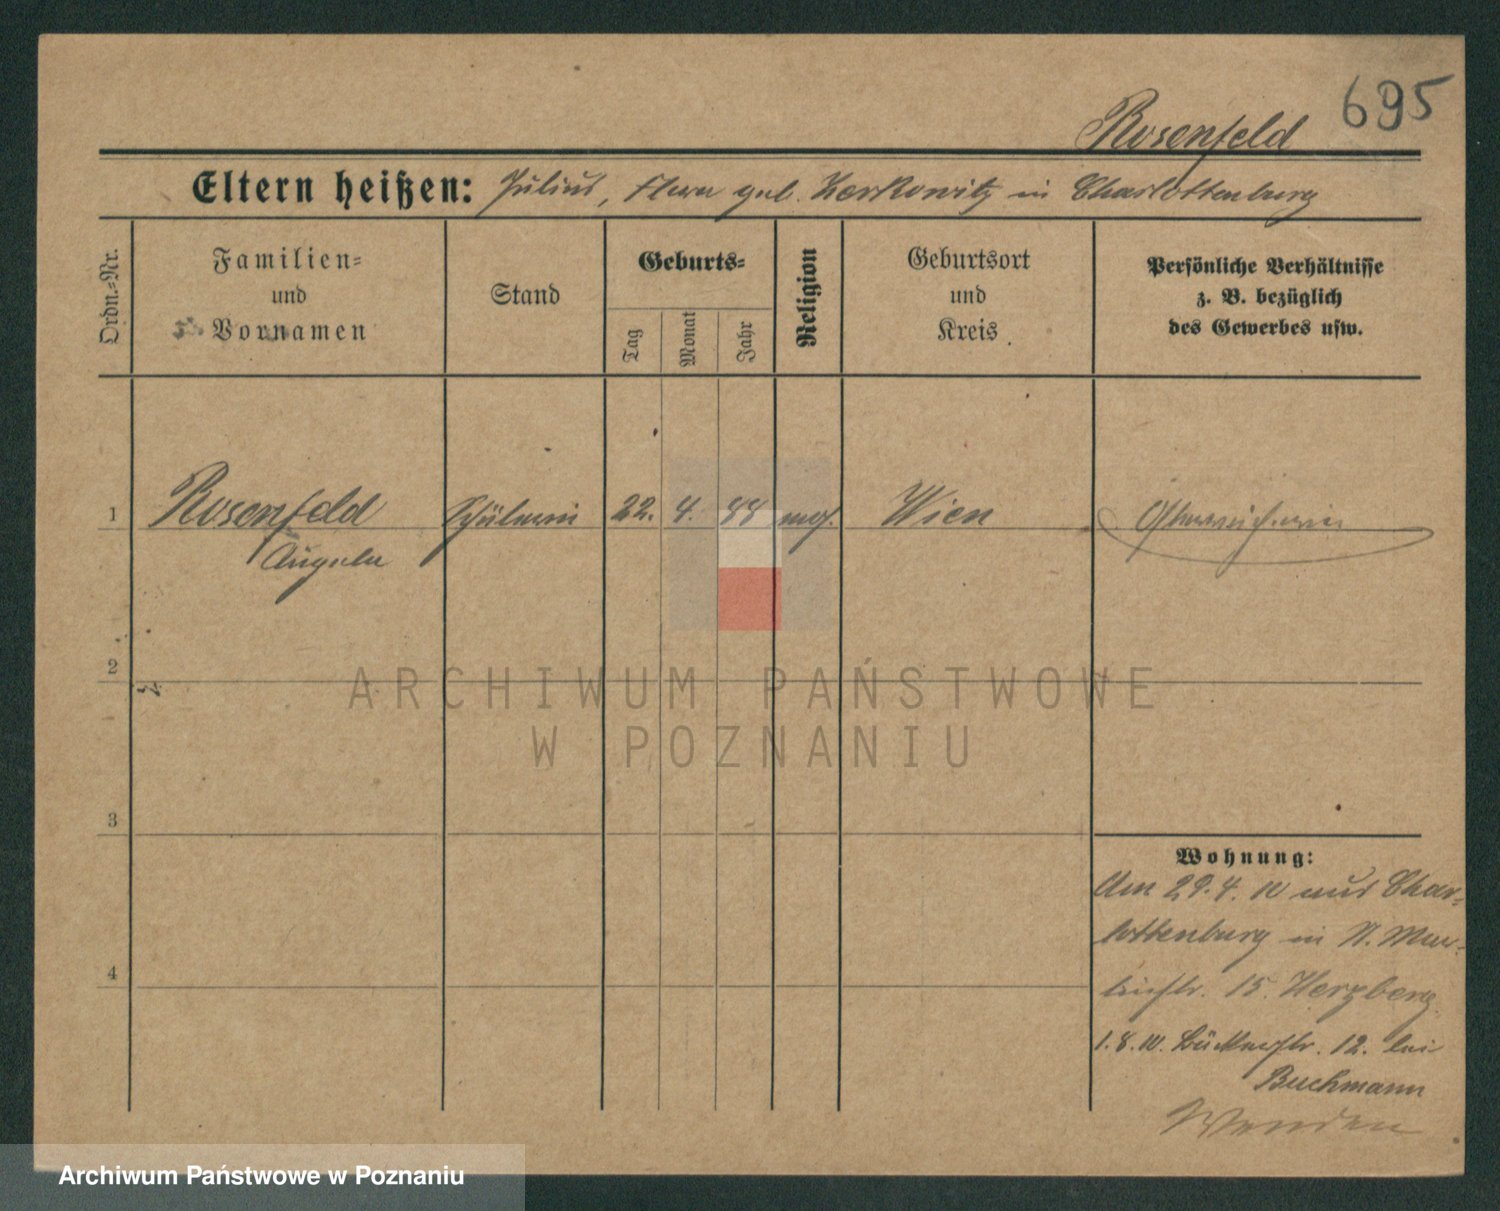 695
Rosenfeld
Eltern heißen: Julius, Flora geb. Zerkowitz in Charlottenburg
Ordn.=Nr.
Familien=
und
Vornamen
Stand
Geburts=
Tag
Monat
Jahr
Religion
Geburtsort
und
Kreis
Persönliche Verhältnisse
z. B. bezüglich
des Gewerbes usw.
1
Rosenfeld
Angela
Schülerin
22. 4. 88
mos.
Wien
Österreicherin
2
3
4
Wohnung:
Am 29.4.10 aus Char-
lottenburg in
15. Herzberg
1.8.10. 12. bei
Buchmann
Wenden
ARCHIWUM PAŃSTWOWE
W POZNANIU
Archiwum Państwowe w Poznaniu